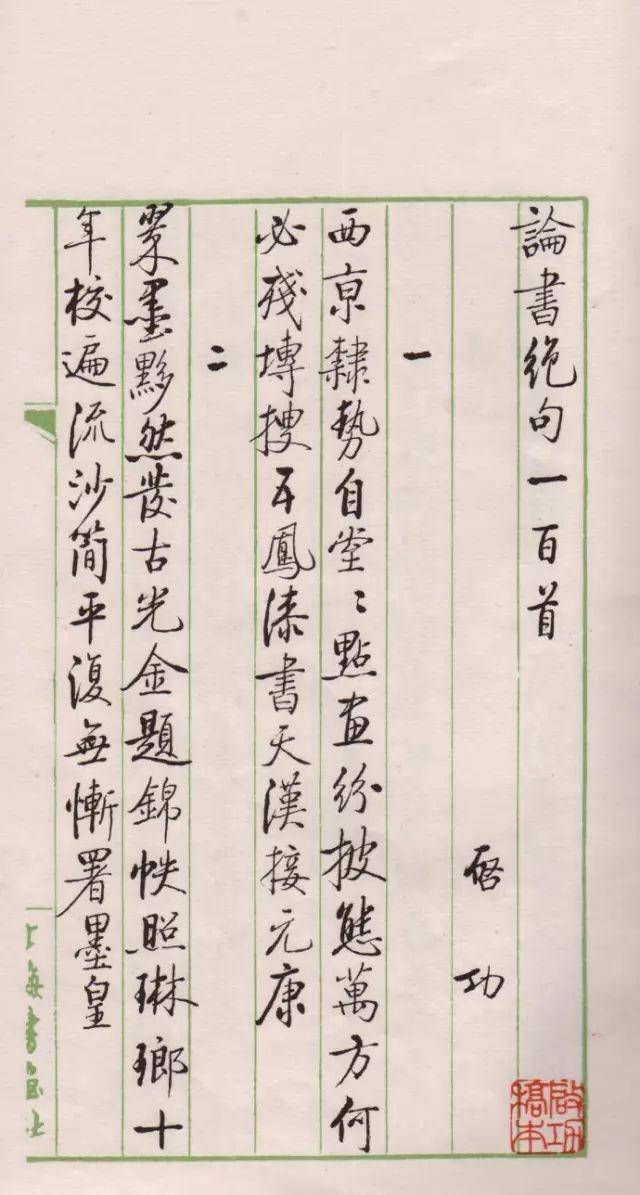 論書絕句一百首
啓功
一
西京隸勢自堂〻點畫紛披態萬方何
必殘塼搜五鳳漆書天漢接元康
二
翠墨黟然發古光金題錦帙照琳瑯十
年校遍流沙簡平復無慚署墨皇
上海書画社
啟功
稿本